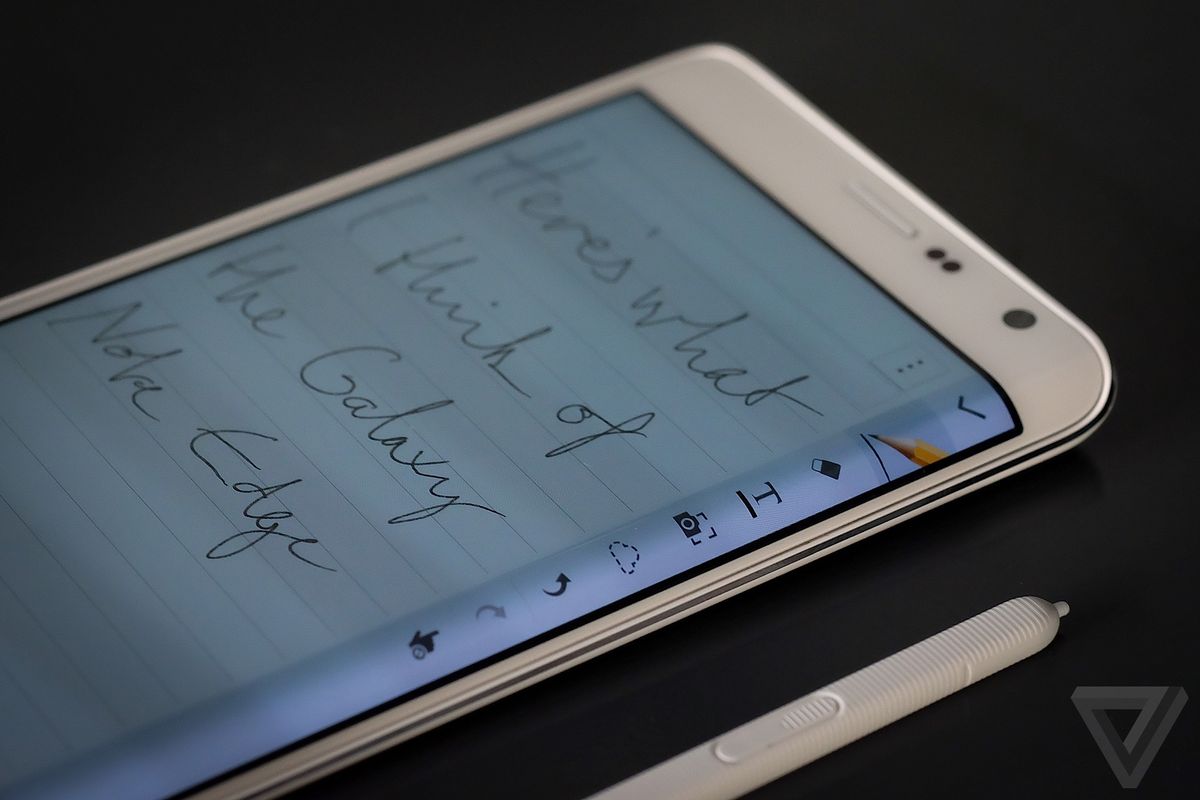 Here's what
I think of
the Galaxy
Note Edge